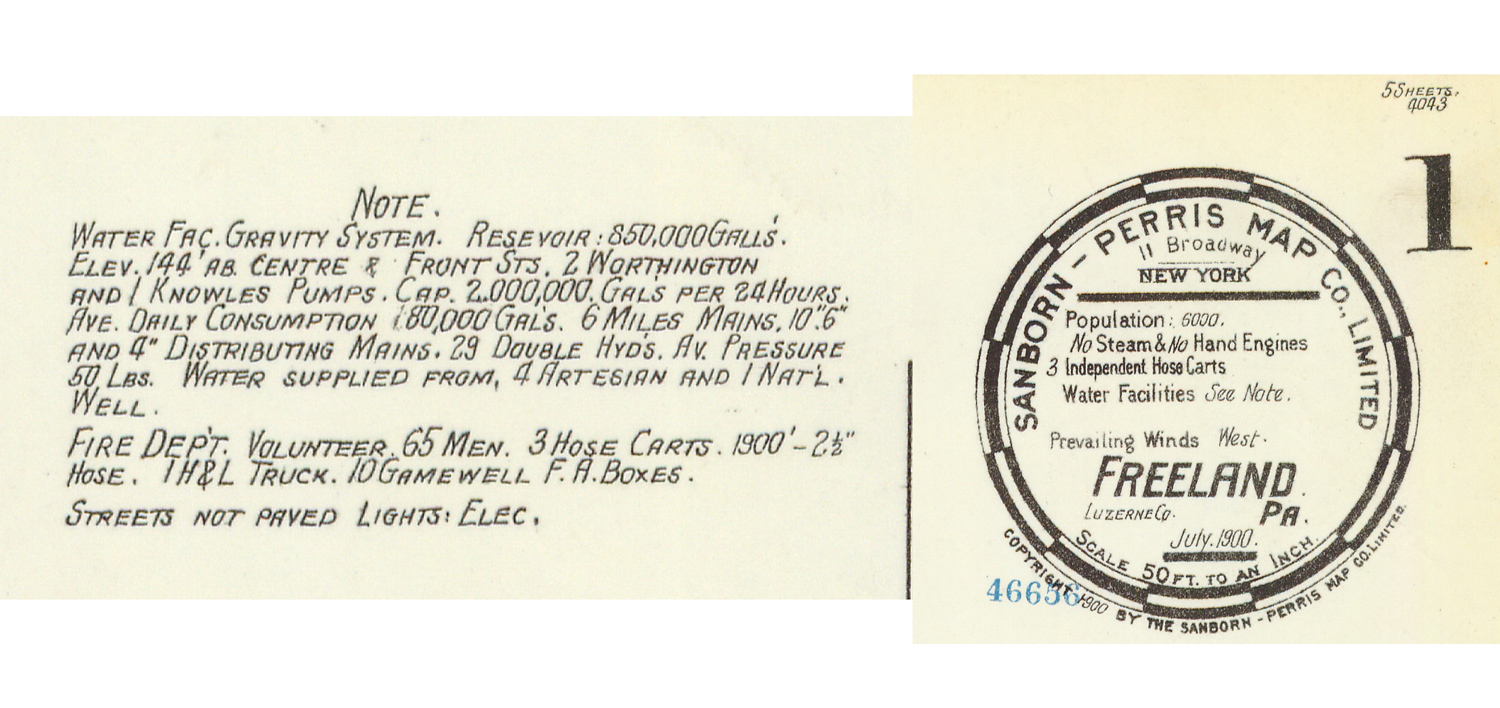 NOTE.
WATER FAC. GRAVITY SYSTEM. RESEVOIR: 850,000 GALLS.
ELEV. 144' AB. CENTRE & FRONT STS. 2 WORTHINGTON
AND 1 KNOWLES PUMPS. CAP. 2.000,000. GAL'S PER 24 HOURS.
AVE. DAILY CONSUMPTION 180,000 GAL'S. 6 MILES MAINS. 10" 6"
AND 4" DISTRIBUTING MAINS. 29 DOUBLE HYD'S. AV. PRESSURE
50 LBS. WATER SUPPLIED FROM, 4 ARTESIAN AND 1 NAT'L.
WELL.
FIRE DEP'T. VOLUNTEER. 65 MEN. 3 HOSE CARTS. 1900' – 2½"
HOSE. 1 H&L TRUCK. 10 GAMEWELL F. A. BOXES.
STREETS NOT PAVED LIGHTS: ELEC.
5 SHEETS.
4043
1
SANBORN – PERRIS MAP CO., LIMITED
11 Broadway
NEW YORK
Population: 6000.
No Steam & No Hand Engines
3 Independent Hose Carts
Water Facilities See Note.
Prevailing Winds West.
FREELAND.
LUZERNE Co. PA.
July. 1900.
SCALE 50 FT. TO AN INCH.
46656
COPYRIGHT 1900 BY THE SANBORN – PERRIS MAP CO. LIMITED.